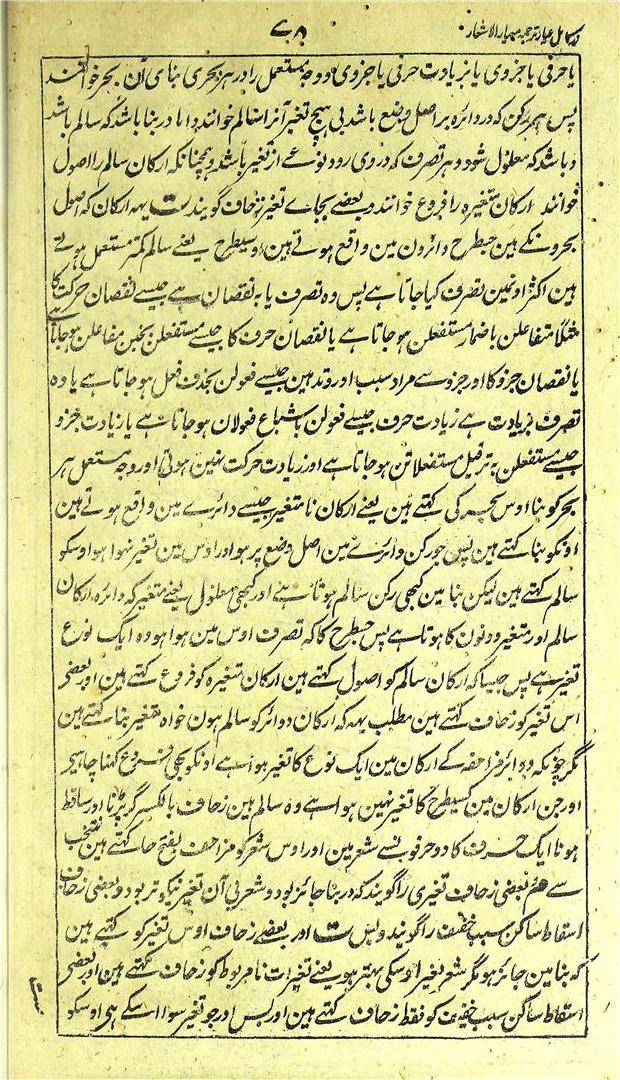 زر کامل عیار ترجمہ معیار الاشعار
۷۸
یا حرفی یا جزوی یا بزیادت حرفی یا جزوی و وجہ مستعمل را در هر بحری بنای آن بحر خوانند
پس هر رکن که در دائره بر اصل وضع باشد بی هیچ تغیر آنرا سالم خوانند و اما در بنا باشد که سالم باشد
و باشد که معلول شود و هر تصرف که در وی رود نوعے از تغیر باشد و همچنانکه ارکان سالم را اصول
خوانند ارکان متغیره را فروع خوانند و بعضے بجاے تغیر زحاف گویند ت یہہ ارکان کہ اصول
بحرونکے ہین جسطرح دائرون مین واقع ہوتے ہین اوسیطرح یعنے سالم کمتر مستعمل ہوتے
ہین اکثر اونمین تصرف کیا جاتا ہے پس وہ تصرف یا بہ نقصان ہے جیسے نقصان حرکت کا
مثلاً متفاعلن باضمار مستفعلن ہو جاتا ہے یا نقصان حرف کا جیسے مستفعلن بخبن مفاعلن ہو جاتا ہے
یا نقصان جزو کا اور جزو سے مراد سبب اور وتد ہین جیسے فعولن بحذف فعل ہو جاتا ہے یا وہ
تصرف بزیادت ہے زیادت حرف جیسے فعولن باشباع فعولان ہو جاتا ہے یا زیادت جزو
جیسے مستفعلن بہ ترفیل مستفعلاتن ہو جاتا ہے اور زیادت حرکت نہین ہوتی اور وجہ مستعمل ہر
بحر کو بنا اوس بحر کی کہتے ہین یعنے ارکان نا متغیر جیسے دائرے مین واقع ہوتے ہین
اونکو بنا کہتے ہین پس جو رکن دائرے مین اصل وضع پر ہو اور اوس مین تغیر نہوا ہو اوسکو
سالم کہتے ہین لیکن بنا مین کبھی رکن سالم ہوتا ہے اور کبھی معلول یعنے متغیر کہ دائرہ ارکان
سالم اور متغیر دونون کا ہوتا ہے پس جسطرح کا کہ تصرف اوس مین ہوا ہو وہ ایک نوع
تغیر ہے پس جیسا کہ ارکان سالم کو اصول کہتے ہین ارکان متغیرہ کو فروع کہتے ہین اور بعضی
اس تغیر کو زحاف کہتے ہین مطلب یہہ کہ ارکان دوائر کو سالم ہون خواہ متغیر بنا کہتے ہین
مگر چونکہ دوائر مزاحفہ کے ارکان مین ایک نوع کا تغیر ہوا ہے اونکو بھی فروع کہنا چاہیے
اور جن ارکان مین کسیطرح کا تغیر نہین ہوا ہے وہ سالم ہین زحاف بالکسر گر پڑنا اور ساقط
ہونا ایک حرف کا دو حرفونسے شعر مین اور اوس شعر کو مزاحف بفتح حا کہتے ہین منتخب
سے هم بعضی زحاف تغیری را گویند که در بنا جائز بود و شعر بی آن تغیر نیکوتر بود و بعضی زحاف
اسقاط ساکن سبب خفیف را گویند و بس ت اور بعضے زحاف اوس تغیر کو کہتے ہین
کہ بنا مین جائز ہو مگر شعر بغیر اوسکی بہتر ہو یعنے تغیرات نامربوط کو زحاف کہتے ہین اور بعضی
اسقاط ساکن سبب خفیف کو فقط زحاف کہتے ہین اور بس اور جو تغیر سوا اسکے ہی اوسکو